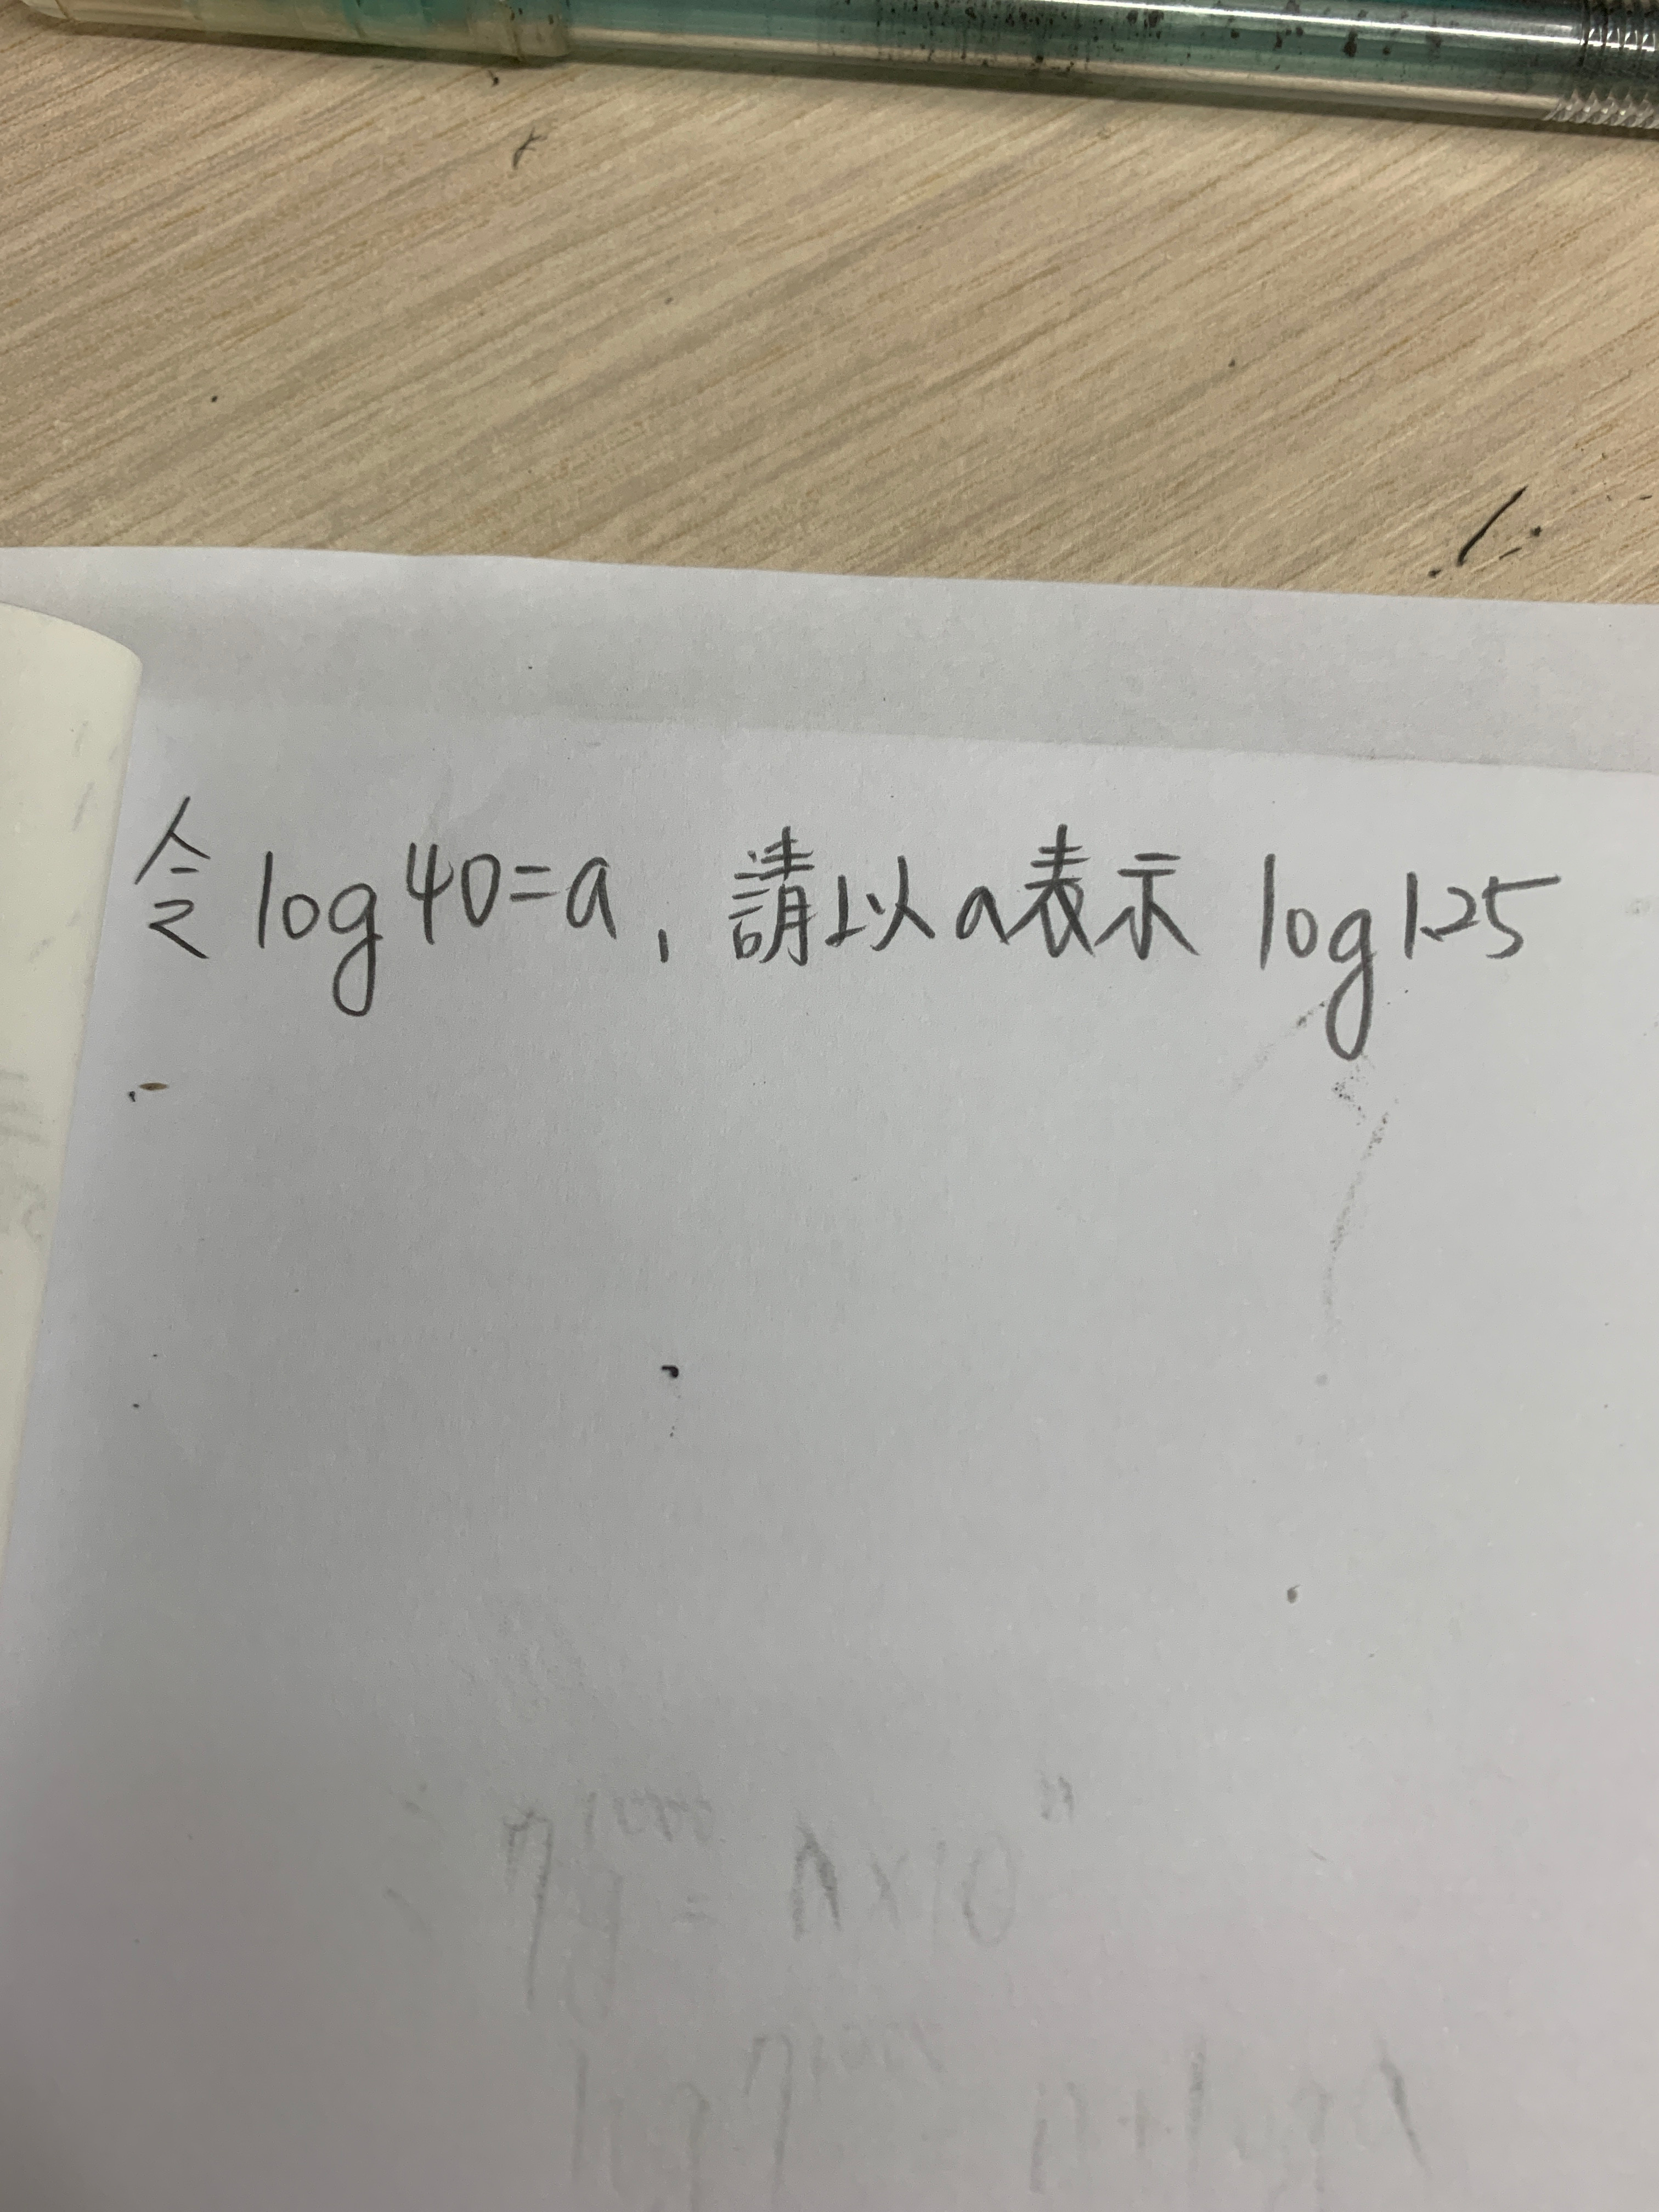 令 log 40=a, 請以a表示 log 125